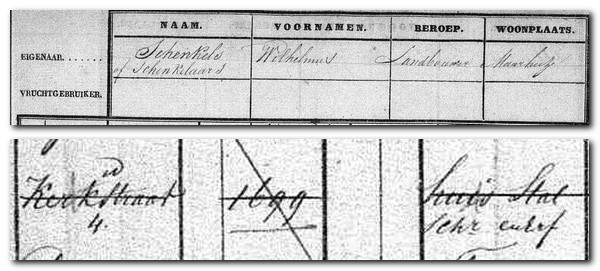 NAAM. VOORNAMEN. BEROEP. WOONPLAATS.
EIGENAAR. Schenkels Wilhelmus Landbouwer Maarheeze
of Schenkelaars
VRUCHTGEBRUIKER.
id
Kerkstraat 1699 huis Stal
4. schr en erf